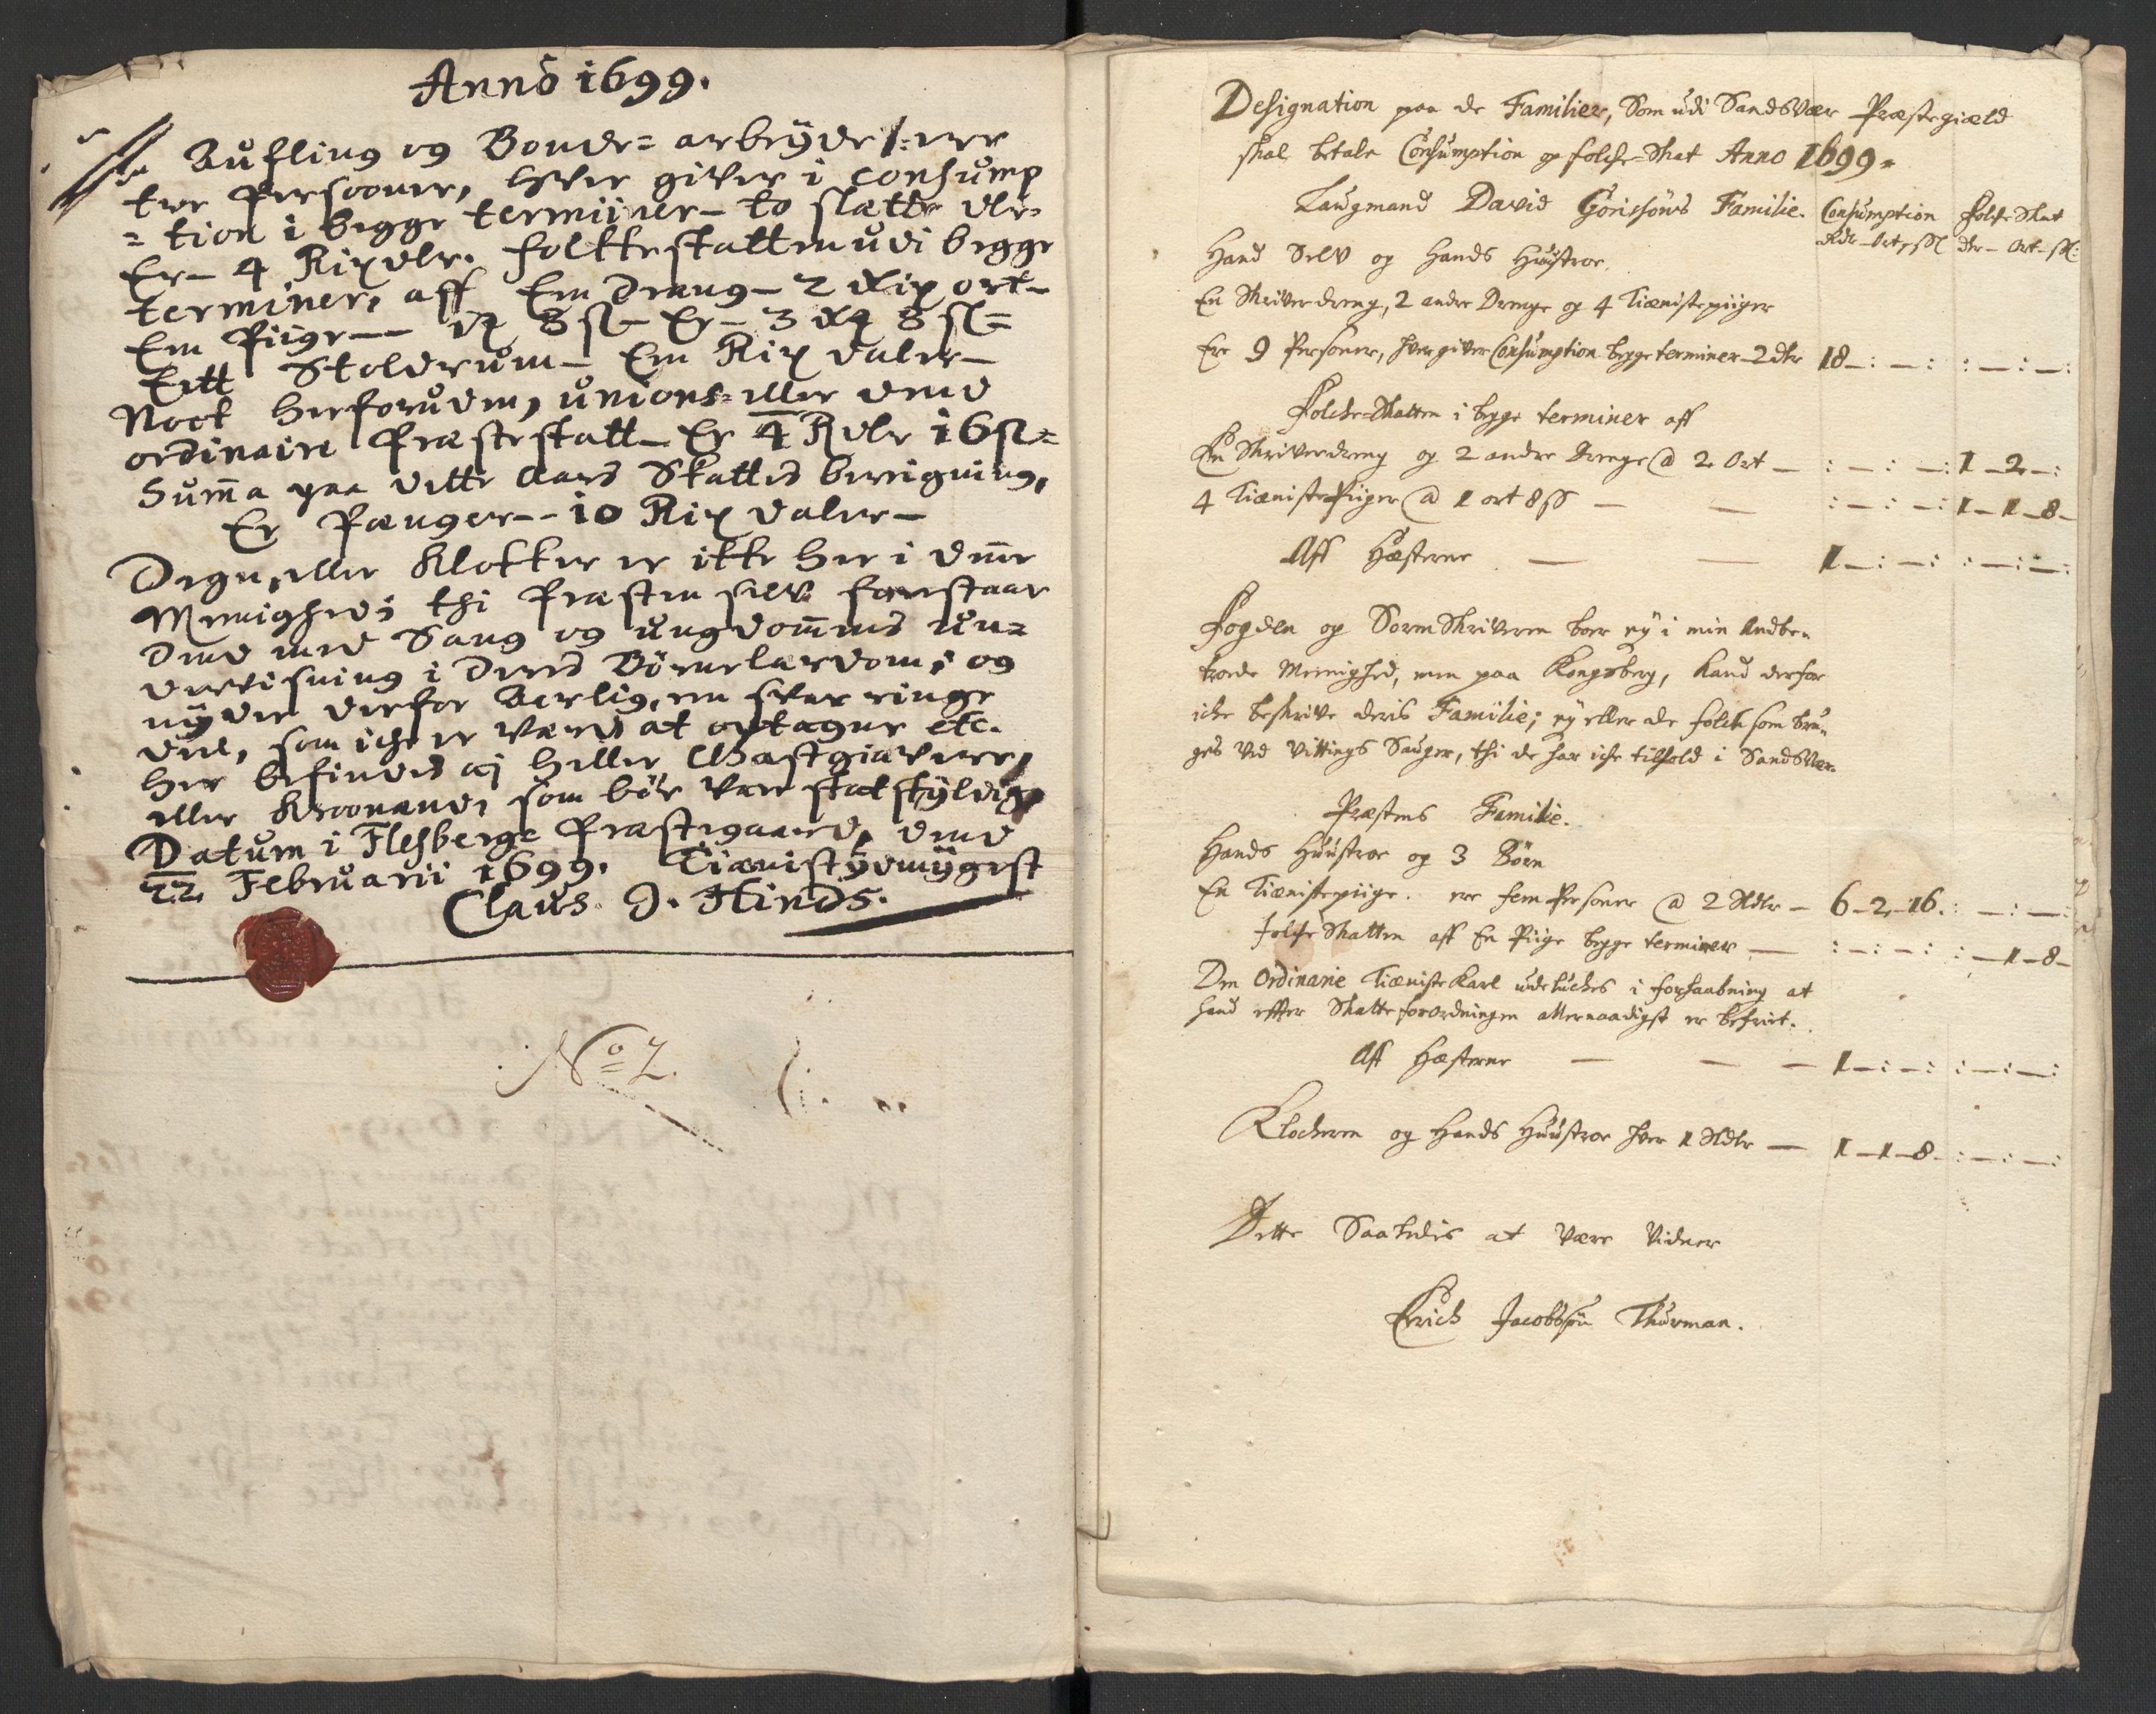 Anno 1699.
Aufling og Bonde= arbeyde /: ere
tre Persooner, hver giver i consump
=tion i begge terminer - to slætte dlr.
Er - 4 Rixdlr. Folkeskatten udi begge
terminer, aff Een Dreng - 2 Rix ort -
Een Piige -- 8 sl - Er - 3 8 sl=
Eett Stoldrum - Een Rix daler -
Nock herforuden, unions= eller dend
ordinaire Præsteskatt - Er 4 Rdlr 16 sl=
Summa paa dette Aars Skattes beregning,
Er Penger -- 10 Rix daler -
Degn, eller Klokker er ikke her i denne
Menighed; thi Præsten selv forestaar
dend med Sang og ungdommens un=
dervisning i deres Børnelærdom; og
nyder derfor Aarlig, en svar ringe
deel, som iche er værd at optagne etc.
Her befindes ej heller Giæstgiævere,
eller Kroomænd, som bør være skatskyldig
Datum i Flesberge Præstegaard, dend
22 Februarii 1699. Tienistydmygest
Claus J. Hinds.
No 2.
Designation paa de Familier, Som udi Sandsvær Præstegiæld
skal betale Consumption og folche=Skat Anno 1699=
Laugmand David Görissöns Familie. Consumption Folche Skat
Rdr - Ort - sl dlr - Ort - sl:
Hand Selv og Hands Hustroe.
En Skriverdreng, 2 andre Drenge og 4 Tiænistepiiger
Ere 9 Personer, hver giver Consumption begge terminer - 2 dlr 18 - : - : : - : - :
Folche=Skatten i begge terminer aff
En Skriverdreng og 2 andre Drenge @ 2 Ort - : - : - : 1 - 2 - :
4 Tiæniste Piiger @ 1 ort 8 ß - - : - : - : 1 - 1 - 8 -
Aff Hæsterne - - 1 - : - : : - : - :
Fogden og SorenSkriveren boer ey i min Andbe=
troede Meenighed, men paa Kongsberg, kand derfor
iche beskrive deris Familie; ey eller de folck som bru=
ges ved Vittings Sauger, thi de har iche tilhold i Sandsvær.
Præstens Familie.
Hands Hustroe og 3 Börn
En Tiænistepiige. ere fem Personer @ 2 Sldlr - 6 - 2 - 16. : - : - :
folche Skatten aff En Piige begge terminer - : - : - : : - 1 - 8 -
Den Ordinarie Tiæniste Karl udeluches i forhaabning at
hand effter Skatte forordningen allernaadigst er befriet.
Aff Hæsterne - - - 1 - : - : : - : - :
Klocheren og Hands Hustroe hver 1 Sldlr - 1 - 1 - 8 - : - : - :
Dette Saaledis at være Vidner
Erich Jacobssøn Thurman.